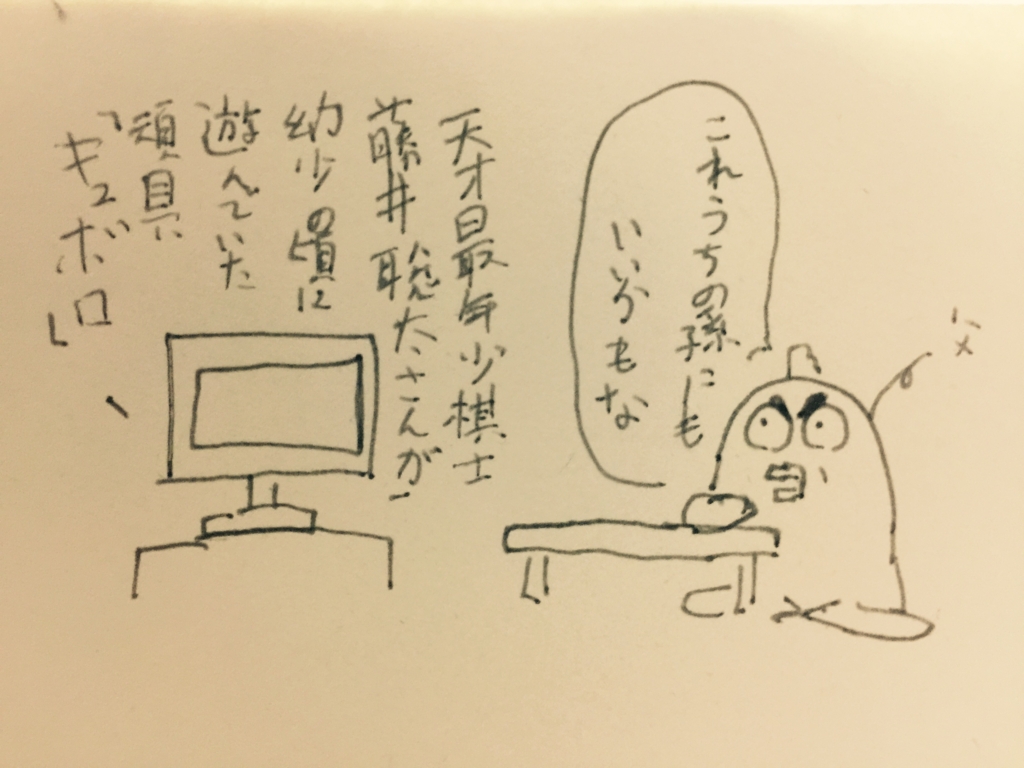 父
これうちの孫にも
いいかもな
天才最年少棋士
藤井聡太さんが
幼少の頃に
遊んでいた
頑具
「キュボロ」